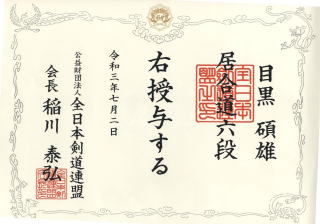 目黒 碩雄
居合道六段
右授与する
令和三年七月二日
公益財団法人 全日本剣道連盟
会長 稲川 泰弘